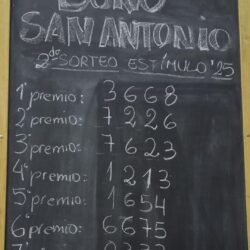 SAN ANTONIO
2do SORTEO ESTÍMULO '25
1° premio: 3668
2° premio: 7226
3° premio: 7623
4° premio: 1213
5° premio: 1654
6° premio: 6675